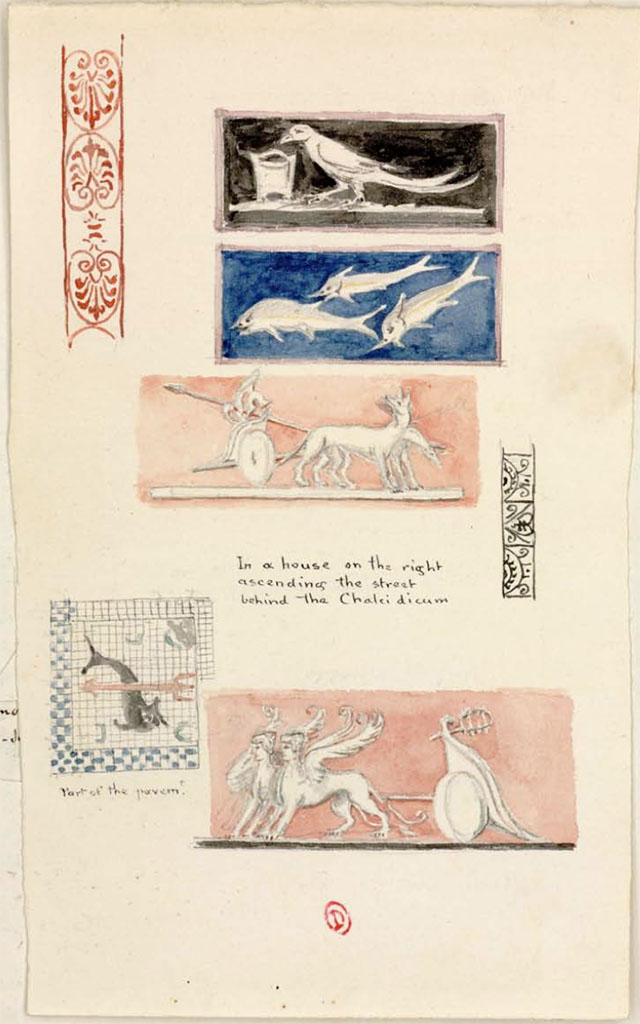 In a house on the right
ascending the street
behind the Chalcidicum
Part of the pavemt.